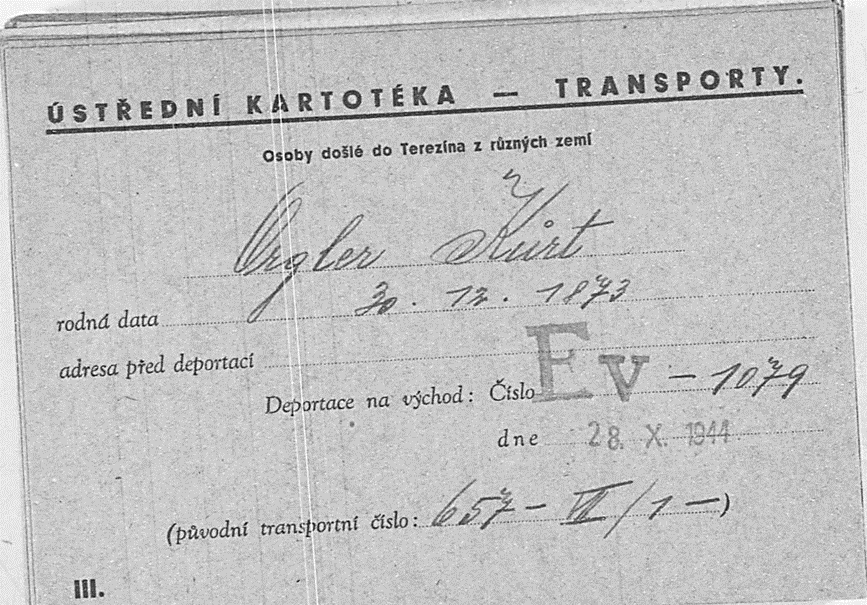 ÚSTŘEDNÍ KARTOTÉKA — TRANSPORTY.
Osoby došlé do Terezína z různých zemí
Orgler Kurt
rodná data 30. 12. 1873
adresa před deportací
Deportace na východ: Číslo Ev - 1079
dne 28. X. 1944
(původní transportní číslo: 657 - VII/1 -)
III.